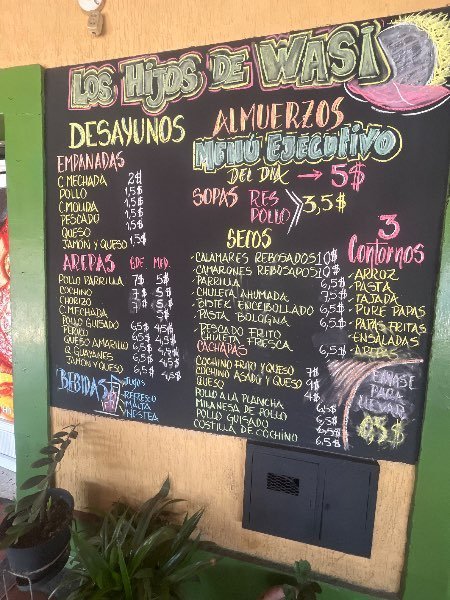 LOS HIJOS DE WASI
DESAYUNOS
EMPANADAS
C.MECHADA 2$
POLLO 1,5$
C.MOLIDA 1,5$
PESCADO 1,5$
QUESO 1,5$
JAMÓN Y QUESO 1,5$
AREPAS GDE. MED.
POLLO PARRILLA 7$ 5$
COCHINO 7$ 5$
CHORIZO 7 5$
C.MECHADA 5$
POLLO GUISADO 6,5$ 4,5$
PERICO 6,5$ 4,5$
QUESO AMARILLO 6,5$ 4,5$
Q. GUAYANES 6,5$ 4,5$
JAMÓN Y QUESO 6,5$ 4,5$
BEBIDAS
JUGOS
REFRESCO
MALTA
NESTEA
ALMUERZOS
MENÚ EJECUTIVO
DEL DÍA → 5$
SOPAS RES
POLLO 3,5$
SECOS
CALAMARES REBOSADOS 10$
CAMARONES REBOSADOS 10$
PARRILLA 6,5$
CHULETA AHUMADA 6,5$
BISTEK ENCEBOLLADO 6,5$
PASTA BOLOGNA 6,5$
PESCADO FRITO
CHULETA FRESCA 6,5$
CACHAPAS
COCHINO FRITO Y QUESO 7$
COCHINO ASADO Y QUESO 9$
QUESO 4$
POLLO A LA PLANCHA 6,5$
MILANESA DE POLLO 6,5$
POLLO GUISADO 6,5$
COSTILLA DE COCHINO 6,5$
3
Contornos
ARROZ
PASTA
TAJADA
PURE PAPAS
PAPAS FRITAS
ENSALADAS
AREPAS
ENVASE
PARA
LLEVAR